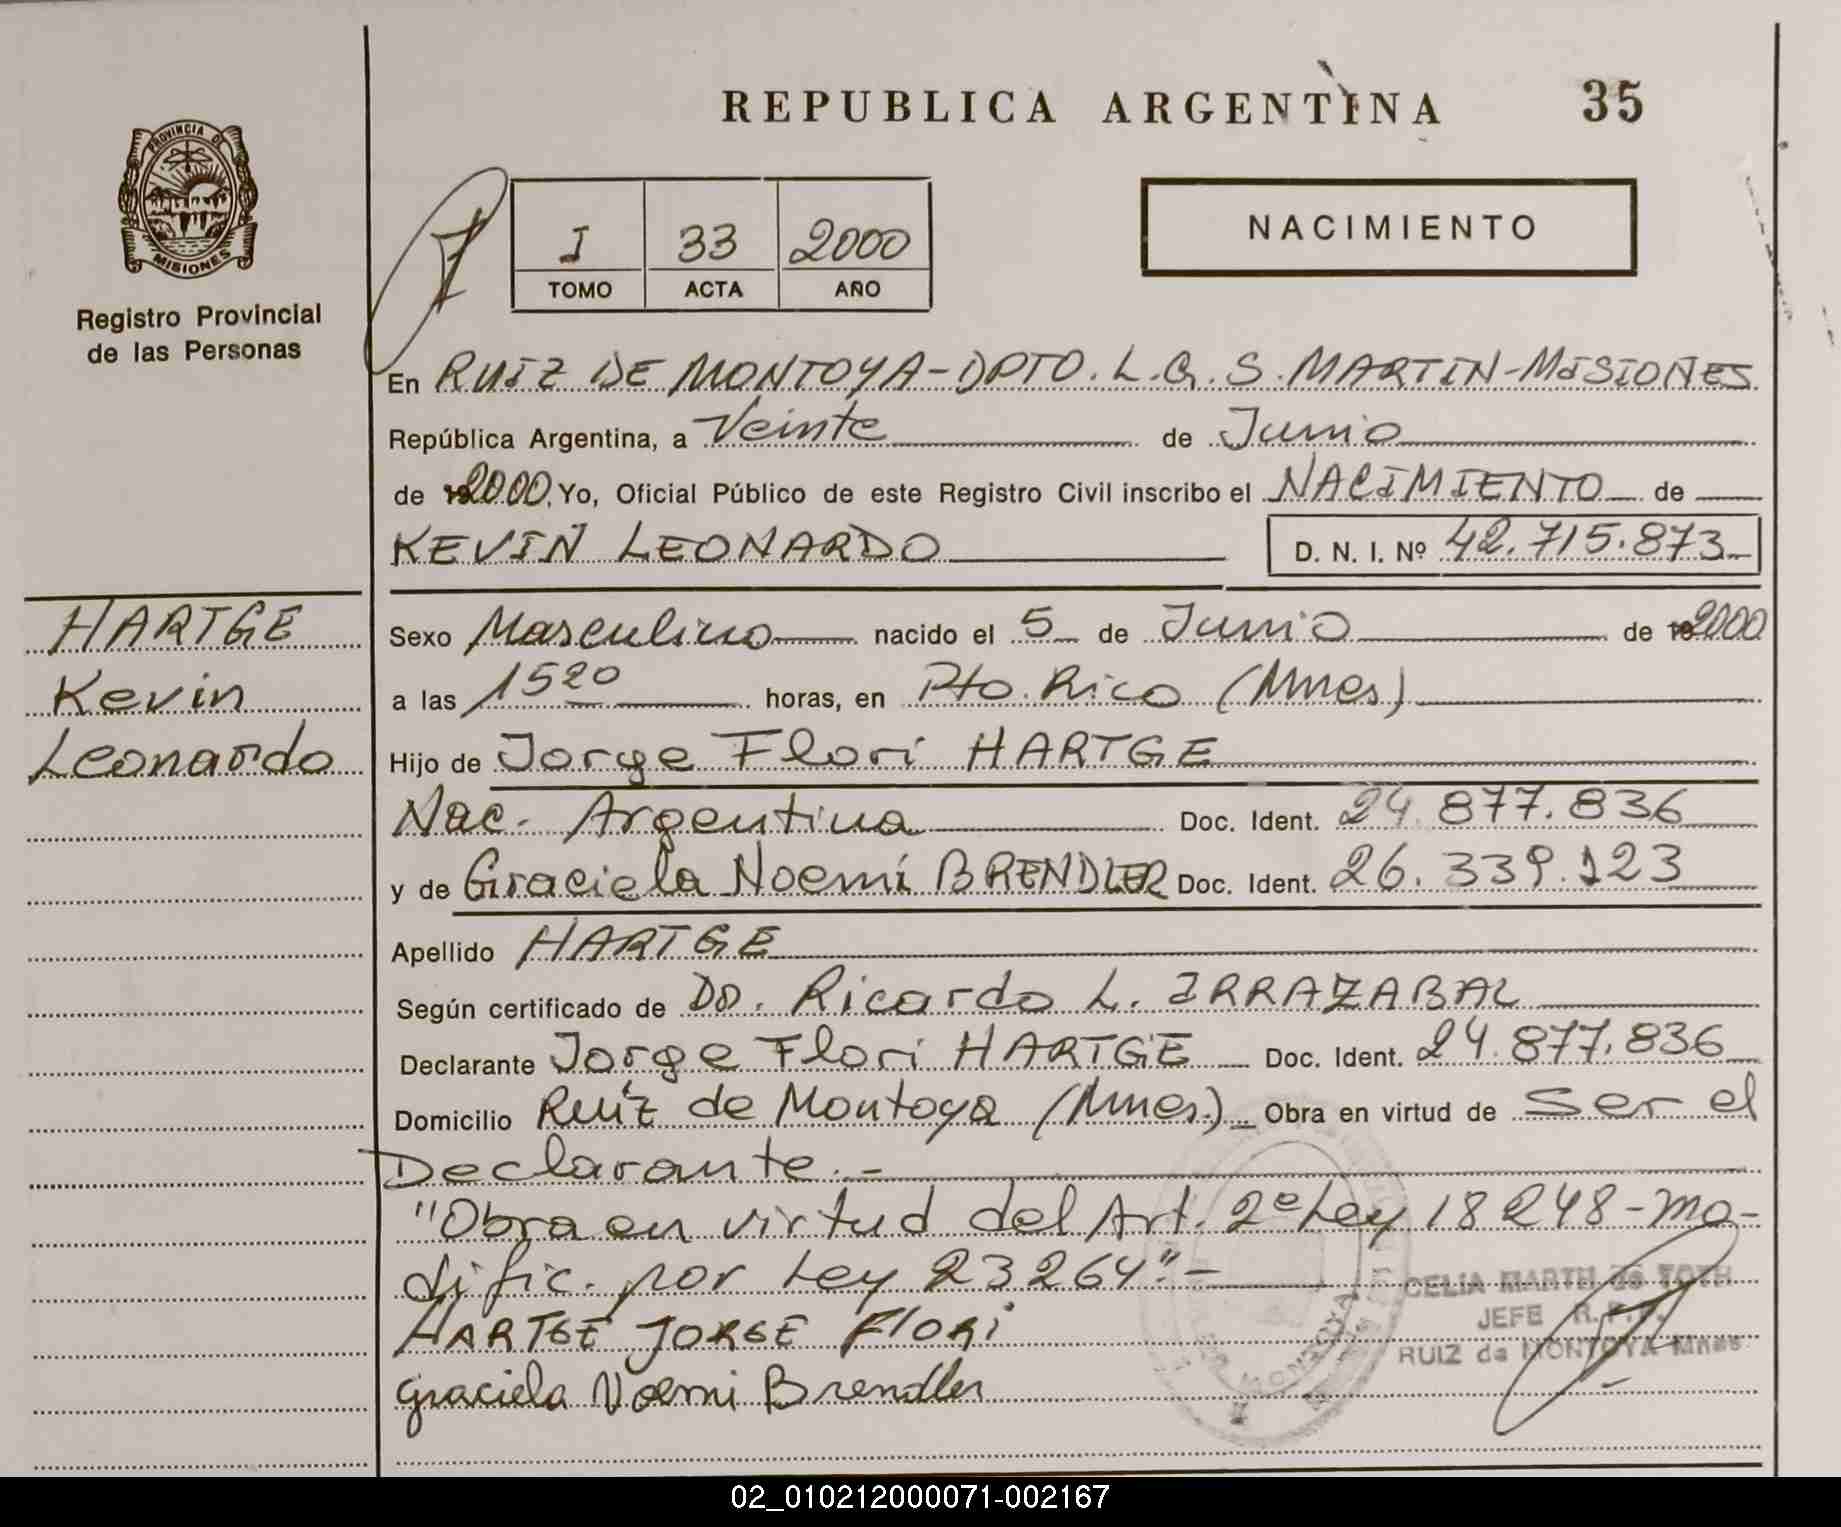 REPUBLICA ARGENTINA 35
PROVINCIA DE
MISIONES
Registro Provincial
de las Personas
I 33 2000
TOMO ACTA AÑO
NACIMIENTO
En RUIZ DE MONTOYA-DPTO. L.G.S. MARTIN-MISIONES
República Argentina, a Veinte de Junio
de 2000, Yo, Oficial Público de este Registro Civil inscribo el NACIMIENTO de
KEVIN LEONARDO D. N. I. Nº 42.715.873
HARTGE
Kevin
Leonardo
Sexo Masculino nacido el 5 de Junio de 2000
a las 1520 horas, en Pto. Rico (Mnes)
Hijo de Jorge Flori HARTGE
Nac. Argentina Doc. Ident. 24.877.836
y de Graciela Noemí BRENDLER Doc. Ident. 26.339.123
Apellido HARTGE
Según certificado de Dr. Ricardo L. IRRAZABAL
Declarante Jorge Flori HARTGE Doc. Ident. 24.877.836
Domicilio Ruíz de Montoya (Mnes.) Obra en virtud de Ser el
Declarante.-
"Obra en virtud del Art. 2º Ley 18248-mo-
dific. por Ley 23264".-
HARTGE JORGE Flori
Graciela Noemi Brendler
CELIA MARTH de TOTH
JEFE R.P.P.
RUIZ de MONTOYA Mnes
02_010212000071-002167